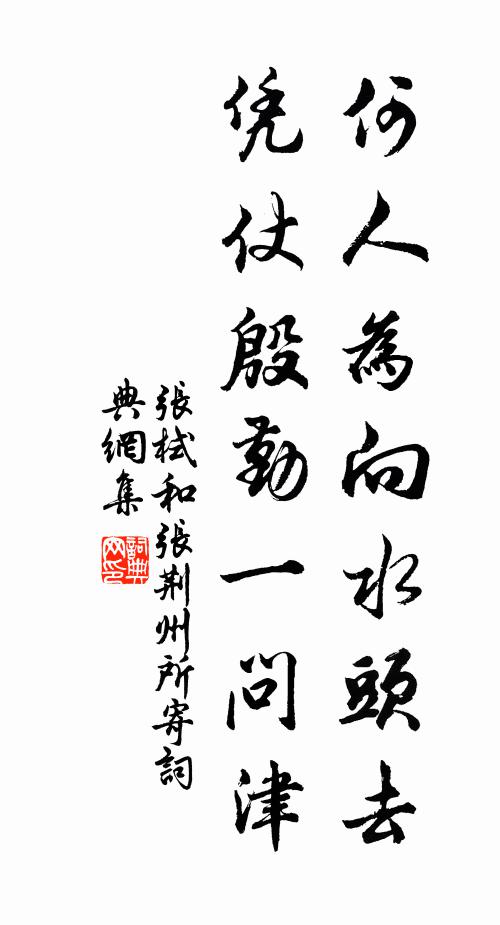 何人為向水頭去
凭仗殷勤一問津
張栻和張荆州所寄詞
典網集
詞典
网印